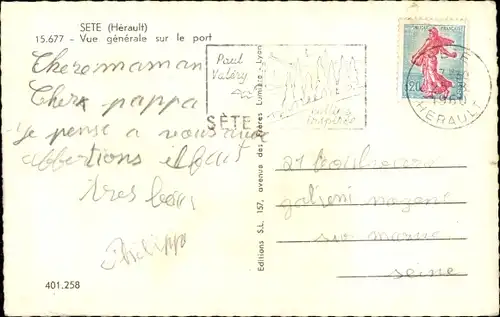 SETE (Hérault)
15.677 - Vue générale sur le port
Chere maman
Cher pappa
Je pense a vous avec
affections il fait
tres beau
Philippe
401.258
Editions S.L. 157, avenue des Frères Lumière - Lyon
Paul
Valéry
SÈTE
ville
inspirée
0,20
1960
HERAULT
21 Boulevare
galieni nogent
sur marne
seine